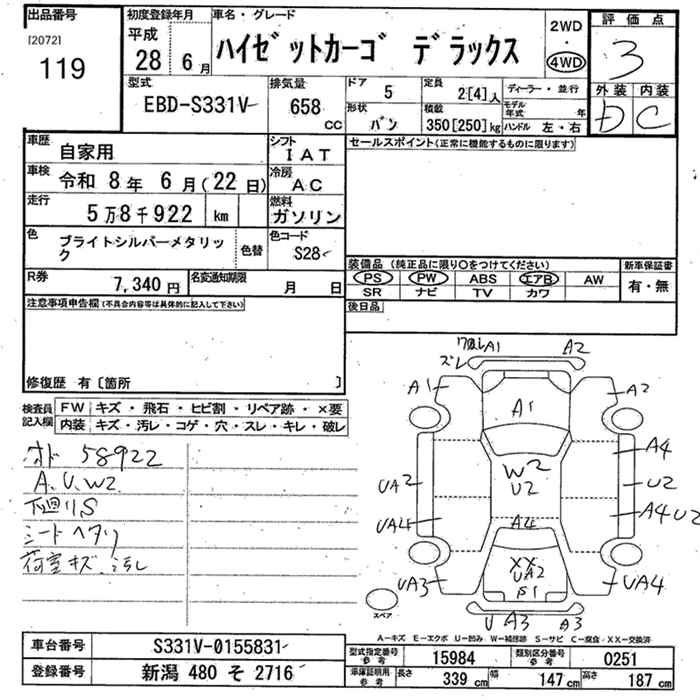 出品番号
[2072]
119
初度登録年月
平成
28 6月
車名・グレード
ハイゼットカーゴ デラックス
2WD
・
4WD
評価点
3
外装 内装
D C
型式
EBD-S331V
排気量
658
CC
ドア
5
定員
2[4]人
形状
バン
積載
350[250]kg
ディーラー・並行
モデル年式 年
ハンドル 左・右
車歴
自家用
シフト
IAT
車検
令和 8年 6月(22日)
冷房
AC
走行
5万8千922 km
燃料
ガソリン
色
ブライトシルバーメタリック
色替
色コード
S28
セールスポイント(正常に機能するものに限ります)
R券
7,340円
名変通知期限
月 日
装備品(純正品に限り○をつけてください)
PS PW ABS エアB AW
SR ナビ TV カワ
新車保証書
有・無
後日品
注意事項申告欄(不具合内容等は具体的に記入して下さい)
修復歴 有〔箇所 〕
検査員記入欄
FW キズ・飛石・ヒビ割・リペア跡・×要
内装 キズ・汚レ・コゲ・穴・スレ・キレ・破レ
オド 58922
A.U.W2
下廻りS
シートヘタリ
荷室キズ、汚レ
ズレ A1 A2
A1 A1 A2
W2
U2
A4
UA2 U2
UA4 A4 A4U2
XX
UA2
S1
UA3 UA4
U A3 A3
スペア
A―キズ E―エクボ U―凹み W―補修跡 S―サビ C―腐食 XX―交換済
車台番号
S331V-0155831
登録番号
新潟 480 そ 2716
型式指定番号
参考
15984
類別区分番号
参考
0251
車庫証明用
参考
長さ
339 cm
幅
147 cm
高さ
187 cm